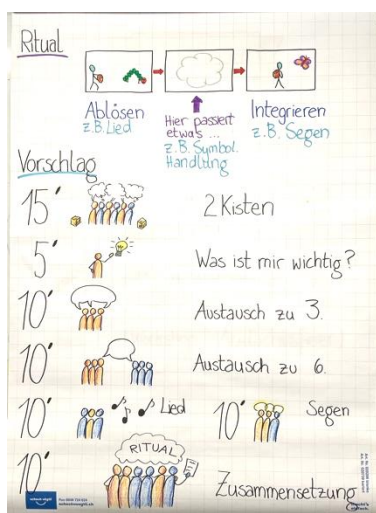 Ritual
Ablösen
z.B. Lied
Hier passiert
etwas...
z.B. Symbol.
Handlung
Integrieren
z.B. Segen
Vorschlag
15' 2 Kisten
5' Was ist mir wichtig?
10' Austausch zu 3.
10' Austausch zu 6.
10' Lied 10' Segen
RITUAL
10' Zusammensetzung